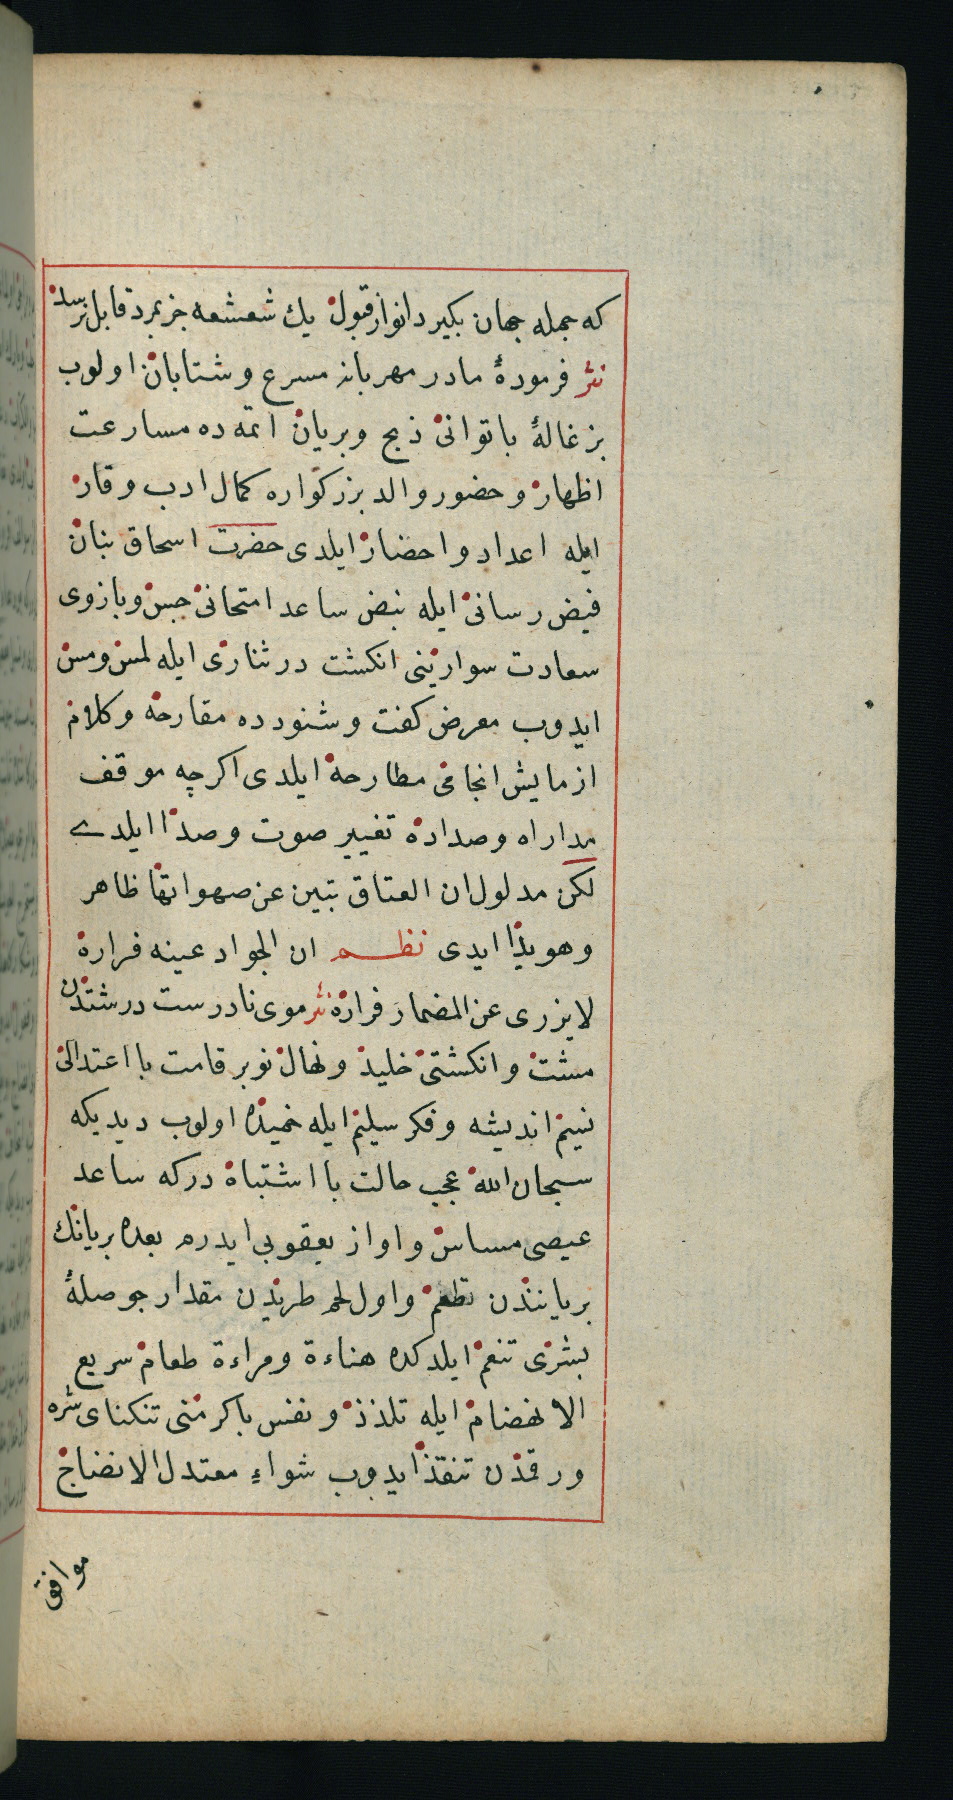 که جمله جهان بکیرد انوار قبول یك شعشعه جز بمرد قابل نرسد
نثر فرمودهٔ مادر مهربانه مسرع وشتابان اولوب
بزغالهٔ باتوانئ ذبح وبریان اتمه ده مسارعت
اظهار وحضور والد بزرکواره کمال ادب وقار
ایله اعداد واحضار ایلدی حضرت اسحاق بنان
فیض رسانئ ایله نبض ساعد امتحانئ جس وبازوی
سعادت سوارینی انکشت درنثاری ایله لمس ومس
ایدوب معرض کفت وشنودده مقارحه وکلام
ازمایش انجامی مطارحه ایلدی اکرچه موقف
مداراه وصداده تغییر صوت وصدا ایلدے
لکن مدلول ان العتاق تبین عن صهواتها ظاهر
وهویدا ایدی نظم ان الجواد عینه فراره
لایزری عن المضمار فراره نثر موی نادرست درشتدن
مشت وانکشتی خلید ونهال نوبر قامت با اعتدالی
نسیم اندیشه وفکر سلیم ایله خمیده اولوب دیدیکه
سبحان الله عجب حالت با اشتباه درکه ساعد
عیصی مساس واواز یعقوبی ایدرم بعده بریانك
بریانندن تطعم واول لحم طریدن مقدار حوصلهٔ
بشری تنعم ایلدکده هناءة ومراءة طعام سریع
الانهضام ایله تلذذ ونفس باکرمنی تنکنای شره
ورقمدن تنقذ ایدوب شواء معتدل الانضاج
موافق